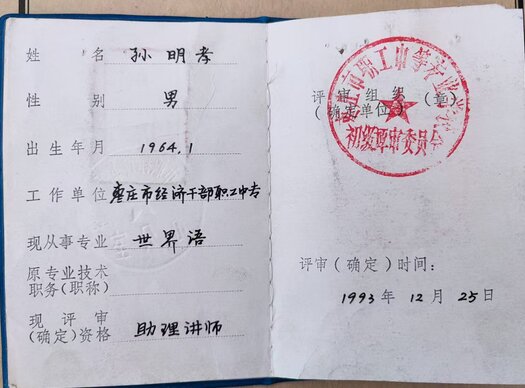 姓名 孙明孝
性别 男
出生年月 1964.1
工作单位 枣庄市经济干部职工中专
现从事专业 世界语
原专业技术
职务(职称)
现评审
(确定)资格 助理讲师
评审组织
(确定单位) (章)
市职工中等专业学校
初级评审委员会
评审(确定)时间:
1993年12月25日